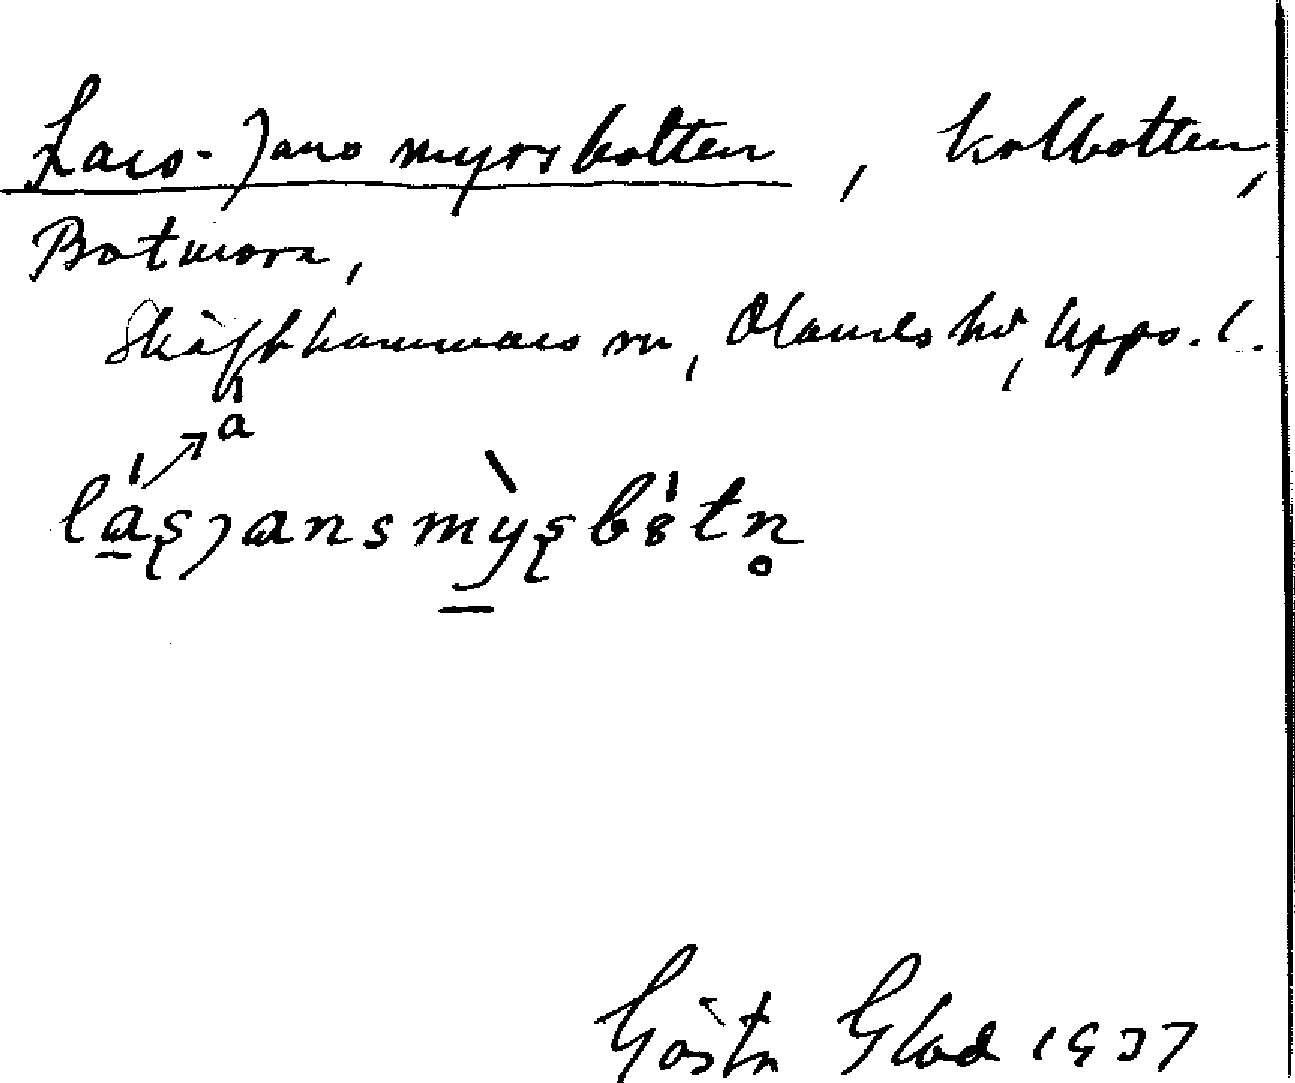 Lars-Jans myrsbotten, kolbotten,
Botmora,
Skäfthammars sn, Olands hd, Upps. l.
a
lasjansmysbotn
Gösta Glad 1937